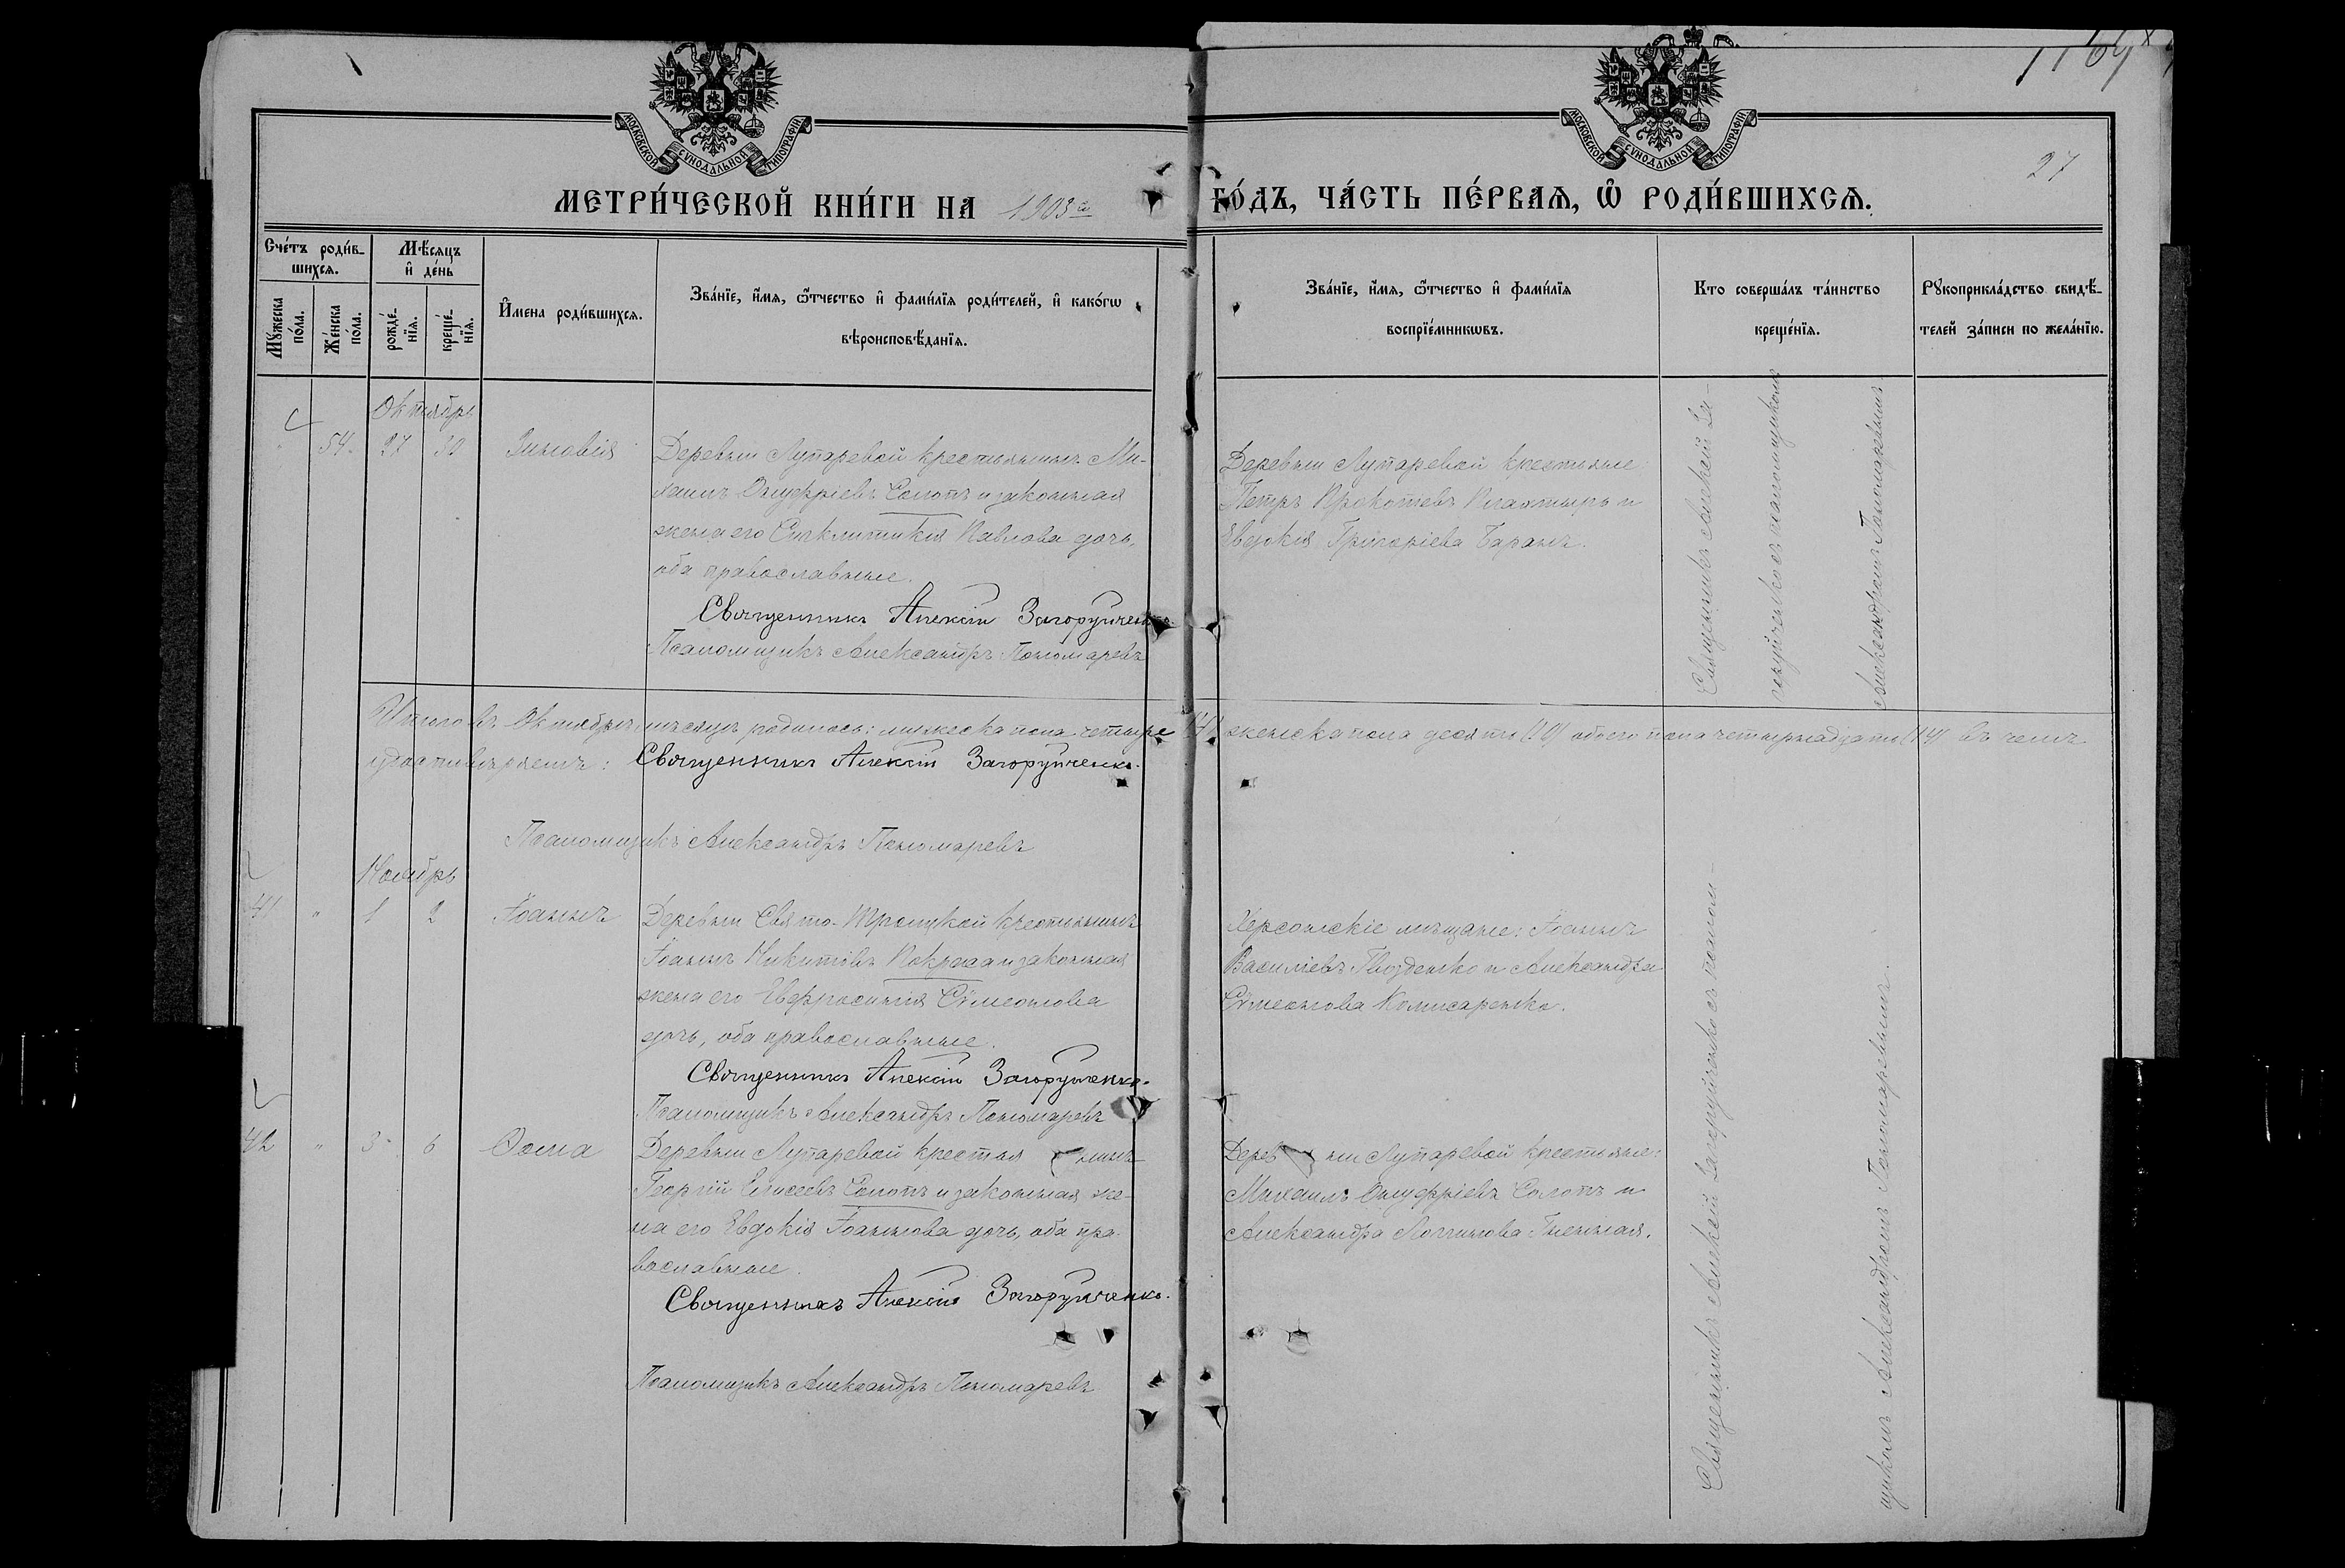 1164
27
МОСКОВСКОЙ СѴНОДАЛЬНОЙ ТИПОГРАФІИ
МОСКОВСКОЙ СѴНОДАЛЬНОЙ ТИПОГРАФІИ
МЕТРИ́ЧЕСКОЙ КНИ́ГИ НА 1903й ГО́ДЪ, ЧА́СТЬ ПЕ́РВАѦ, Ѡ҆ РОДИ́ВШИХСѦ.
Сче́тъ роди́в-
шихсѧ.
Мꙋ́жеска
по́ла.
Же́нска
по́ла.
Мѣ́сѧцъ
и҆ де́нь
рожде́-
нїѧ.
креще́-
нїѧ.
И҆мена роди́вшихсѧ.
Зва́нїе, и҆́мѧ, ѻ҆́тчество и҆ фами́лїѧ роди́телей, и҆ како́гѡ
вѣроисповѣ́данїѧ.
Зва́нїе, и҆́мѧ, ѻ҆́тчество и҆ фами́лїѧ
воспрїе́мникѡвъ.
Кто соверша́лъ та́инство
креще́нїѧ.
Рꙋкоприкла́дство свидѣ́-
телей за́писи по жела́нїю.
Октябрь
" 54. 27 30 Зиновія
Деревни Лупаревой крестьянинъ Ми-
хаилъ Онуфріевъ Солопъ и законная
жена его Синклитикія Павлова дочь,
оба православные.
Священникъ Алексій Загоруйченко
Псаломщикъ Александръ Пономаревъ
Деревни Лупаревой крестьяне:
Петръ Прокопіевъ Пластырь и
Евдокія Григоріева Баранъ.
Священникъ Алексій За-
горуйченко съ псаломщикомъ
Александромъ Пономаревымъ.
Итого въ Октябрѣ мѣсяцѣ родилось: мужеска пола четыре (4) женска пола десять (10) обоего пола четырнадцать (14) въ чемъ
удостовѣряемъ: Священникъ Алексій Загоруйченко.
Псаломщикъ Александръ Пономаревъ
Ноябрь
41 " 1 2 Іоаннъ
Деревни Свято-Троицкой крестьянинъ
Іоаннъ Никитовъ Покраса и законная
жена его Евфросинія Сѵмеонова
дочь, оба православные.
Священникъ Алексій Загоруйченко.
Псаломщикъ Александръ Пономаревъ
Херсонскіе мѣщане: Іоаннъ
Василіевъ Гвозденко и Александра
Сѵмеонова Комисаренко.
42 " 3 6 Ѳома
Деревни Лупаревой крестьянинъ
Георгій Елисеевъ Солопъ и законная же-
на его Евдокія Іоаннова дочь, оба пра-
вославные.
Священникъ Алексій Загоруйченко.
Псаломщикъ Александръ Пономаревъ
Деревни Лупаревой крестьяне:
Михаилъ Онуфріевъ Солопъ и
Александра Логгинова
Священникъ Алексій Загоруйченко съ псалом-
щикомъ Александромъ Пономаревымъ.